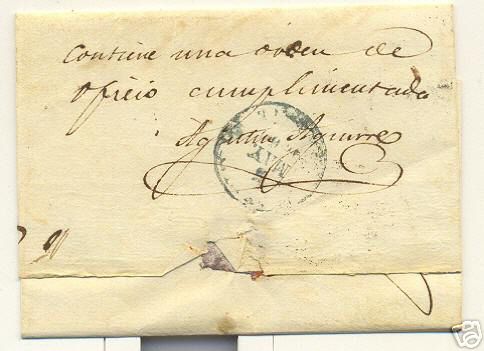 Contiene una orden de
oficio cumplimentada
Agustin Aguirre
MAY